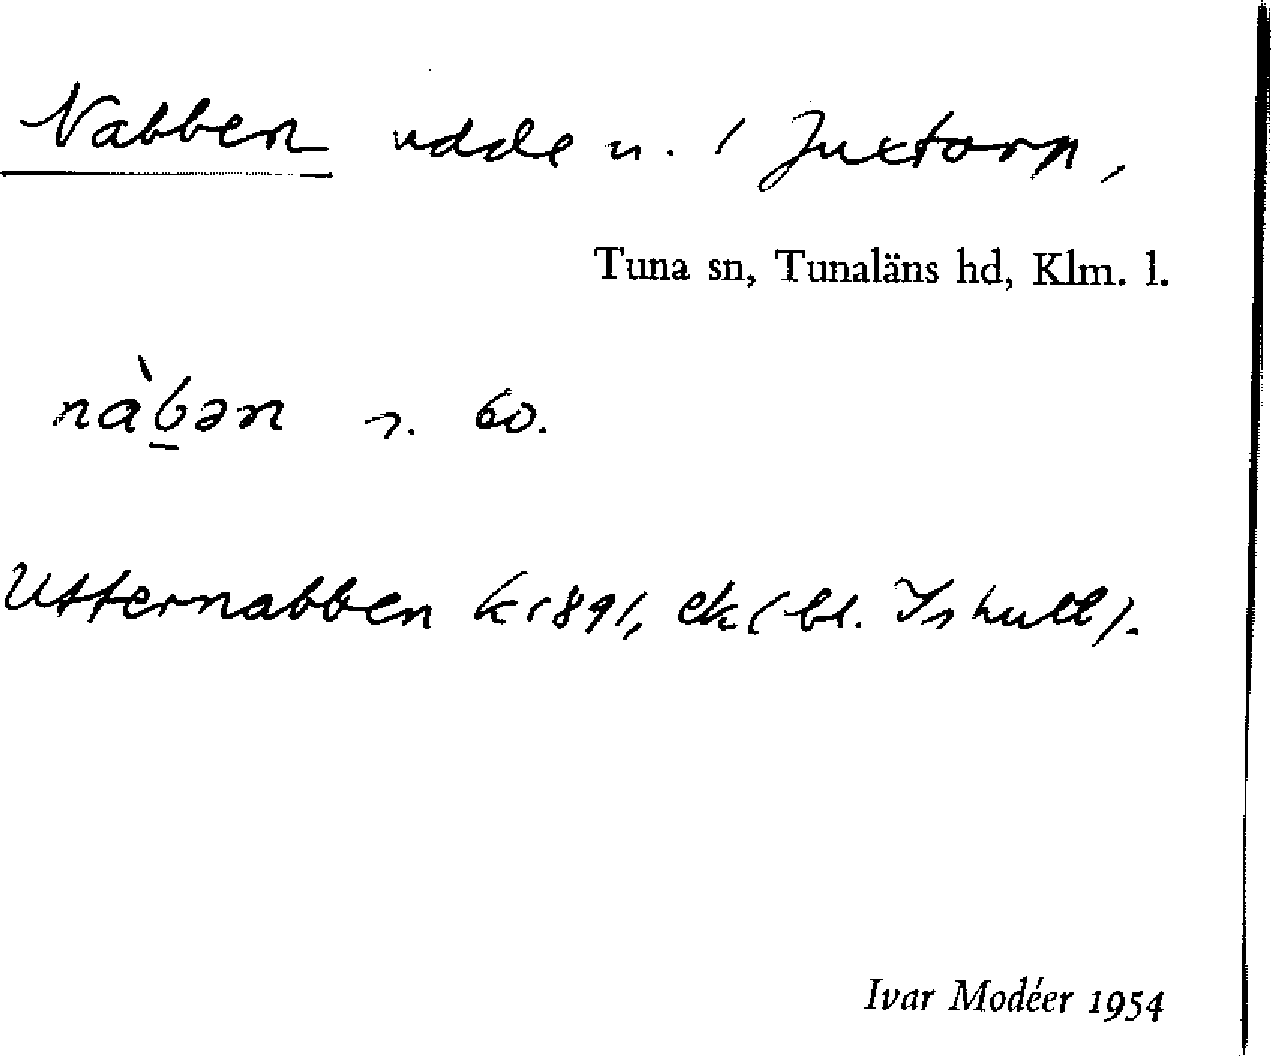 Nabben udde n. i Juxtorp,
Tuna sn, Tunaläns hd, Klm. l.
nàb̲ən r. 60.
Utternabben k 1891, ek (bl. Ishult).
Ivar Modéer 1954